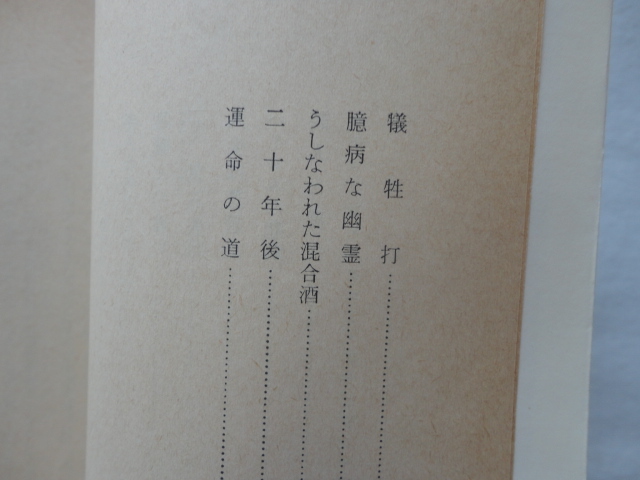 犠牲打…………………
臆病な幽霊…………………
うしなわれた混合酒…………………
二十年後…………………
運命の道…………………